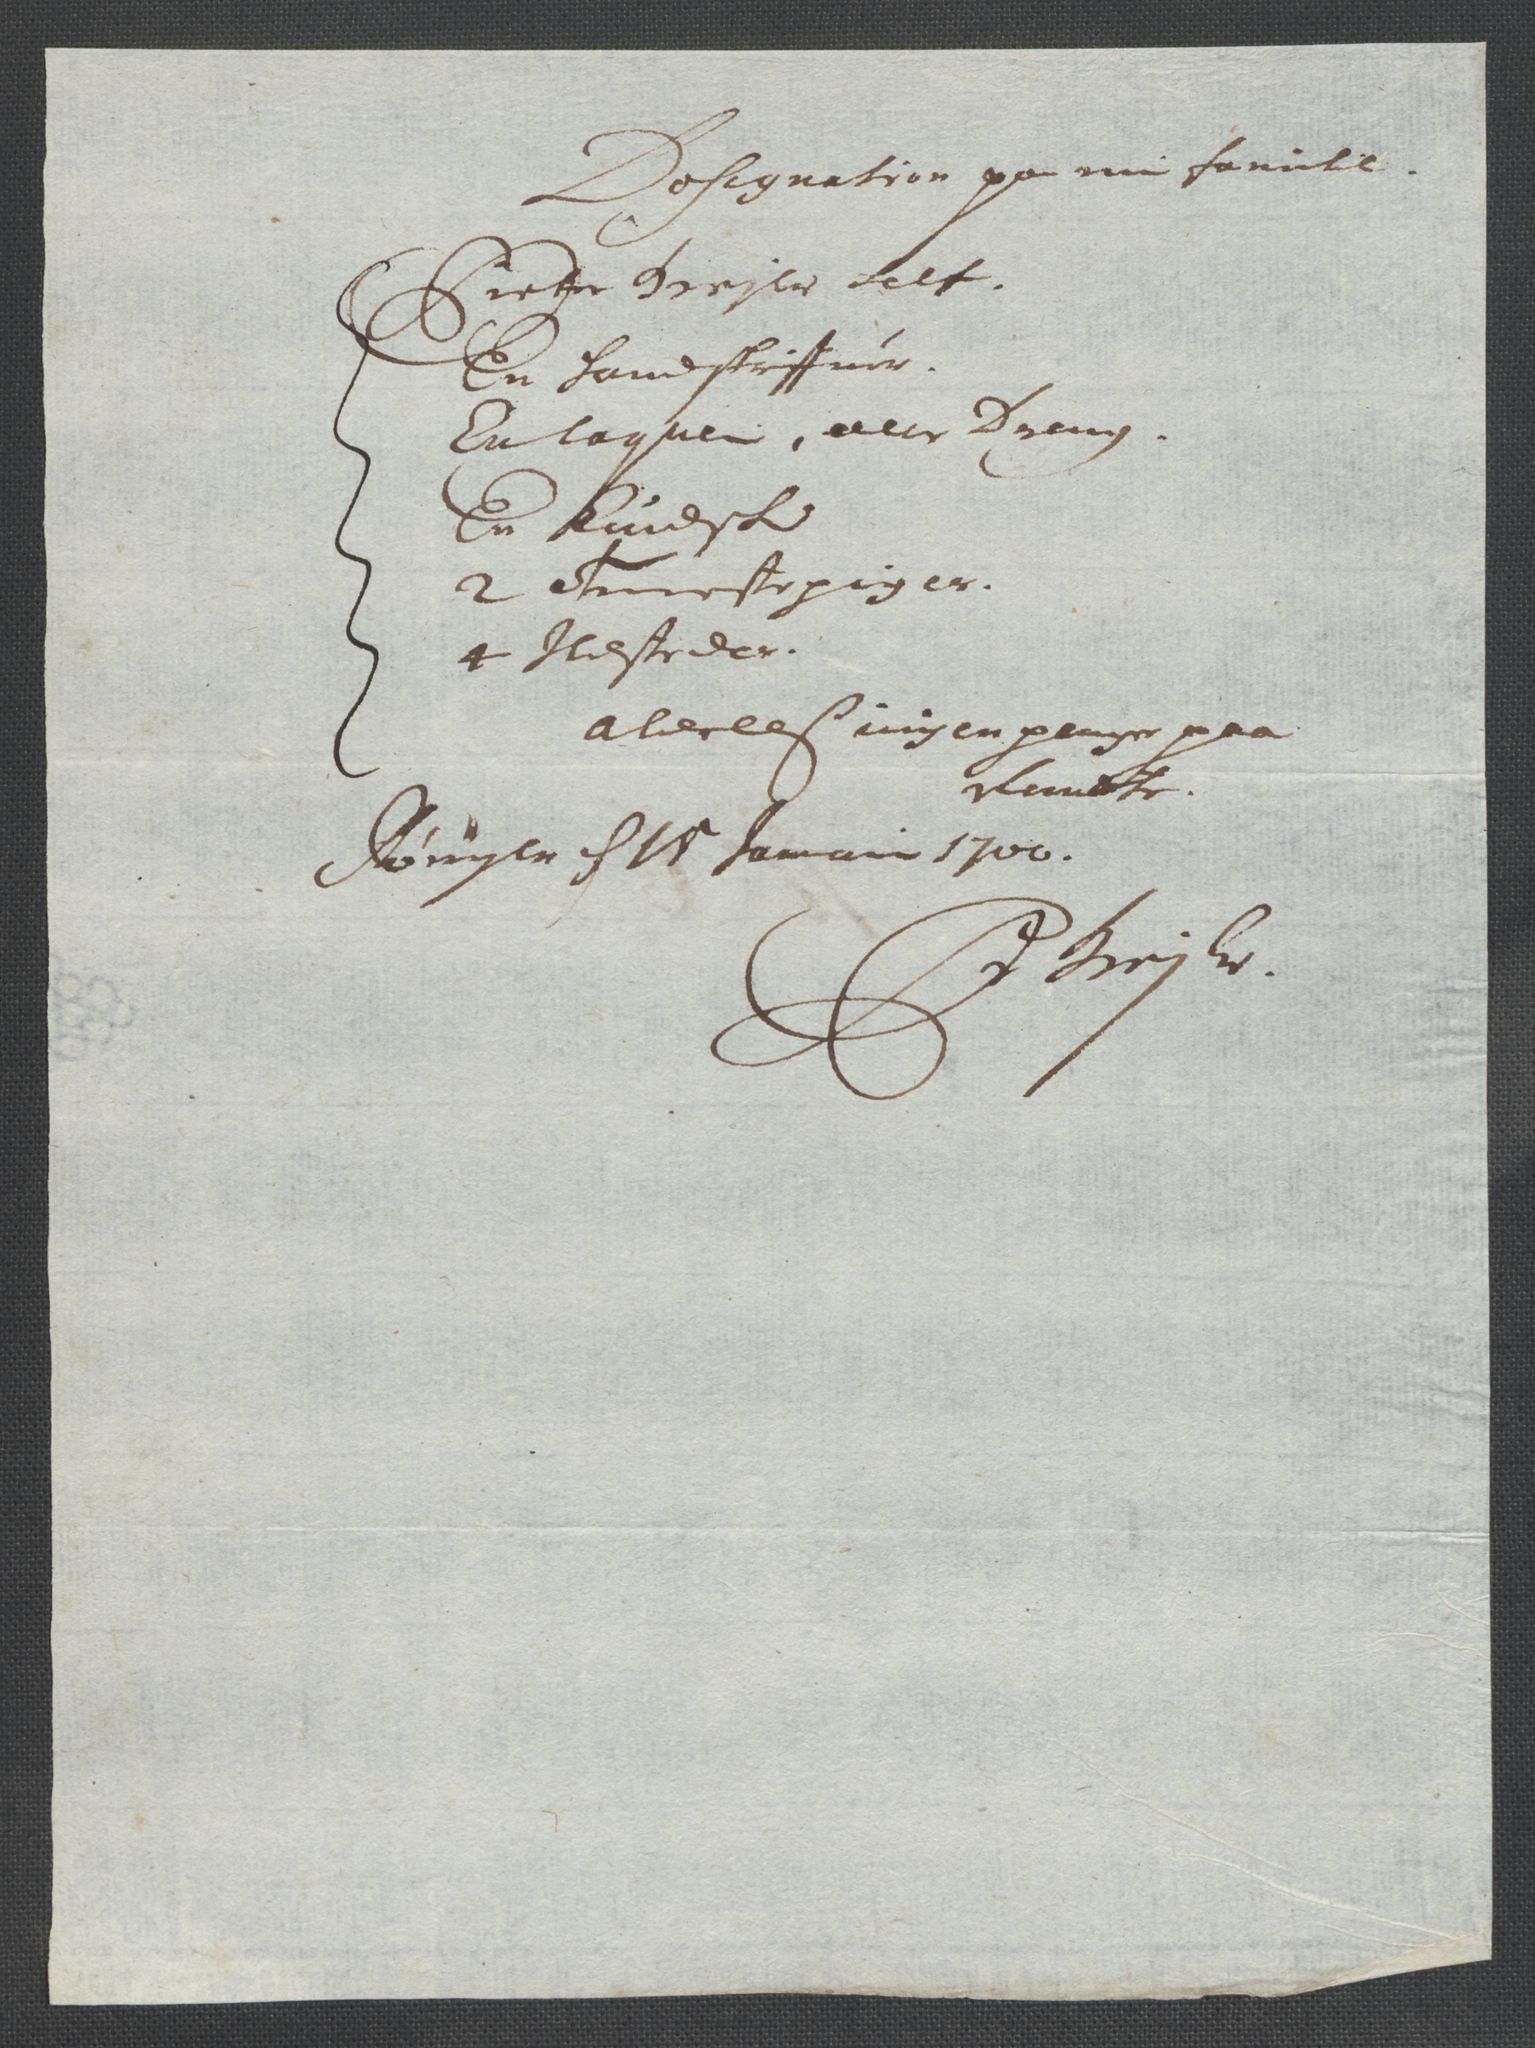 Desegnation paa min familie.
Pietter Dreyer self.
En handskriffuer.
En laquei, eller Dreng.
En Kudsk
2 Tienestepiger.
4 Ildsteder.
Aldeeless ingen penger paa
Rente.
d 15 Januari 1700.
P Dreyer.